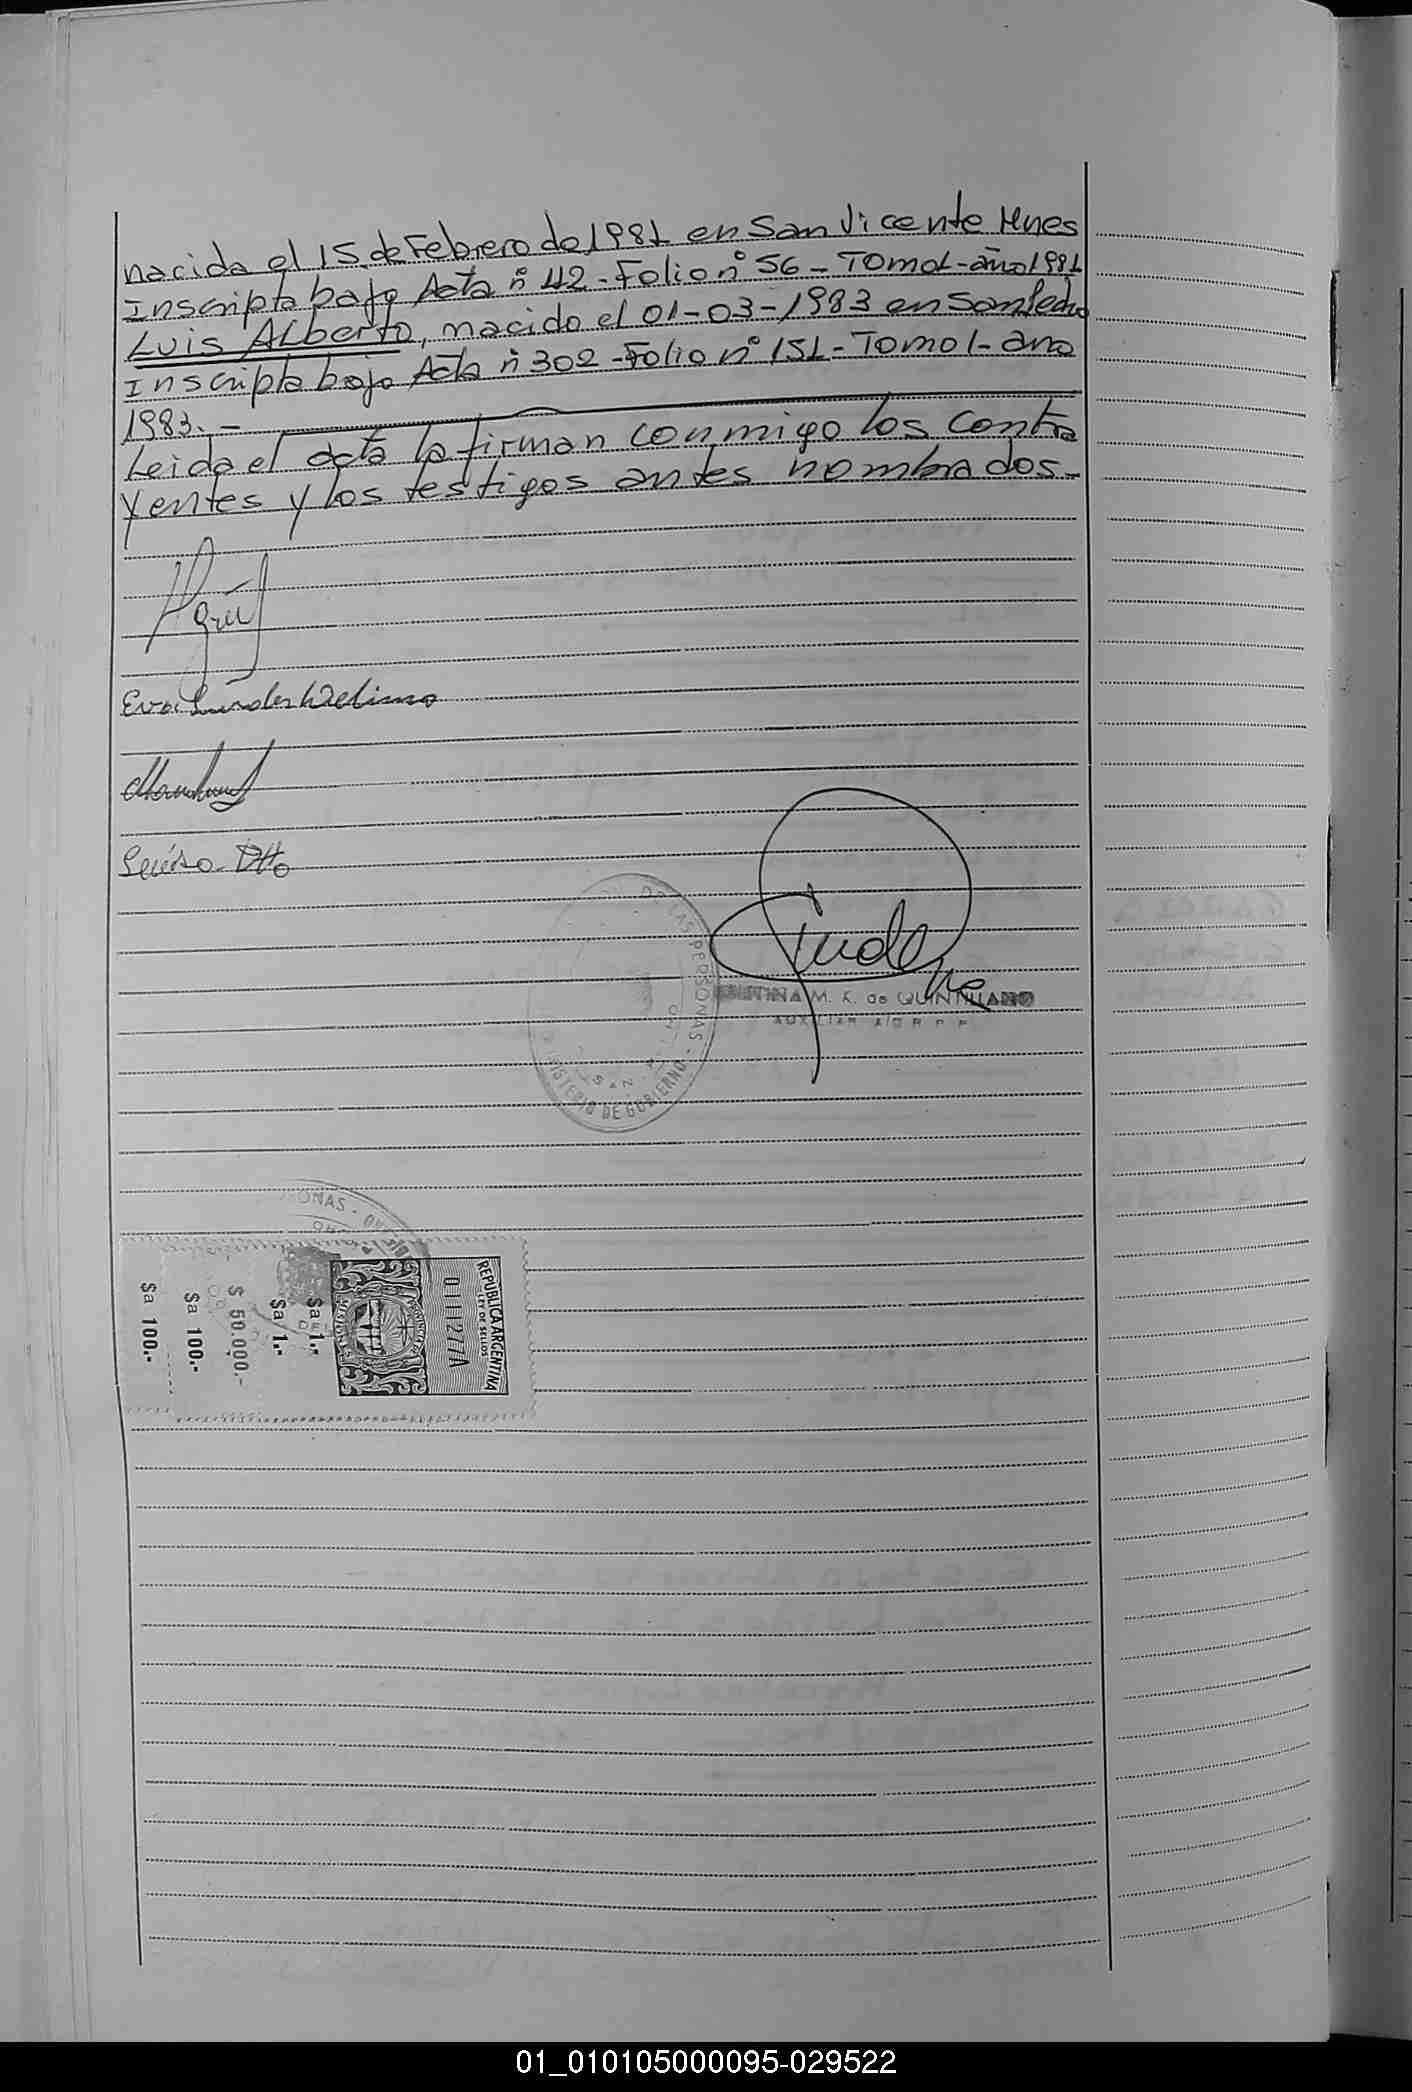 nacida el 15 de Febrero de 1981 en San Vicente Mnes
Inscripta bajo Acta nº 42 - Folio nº 56 - Tomo 1 - año 1981
Luis Alberto, nacido el 01-03-1983 en San Pedro
Inscripta bajo Acta nº 302 - Folio nº 151 - Tomo 1 - ano
1983.-
Leida el acta la firman conmigo los contra
yentes y los testigos antes nombrados.-
Eva
DE LAS PERSONAS -
MINISTERIO DE GOBIERNO
M. K. de QUINTILIANO
AUXILIAR
ONAS -
REPUBLICA ARGENTINA
LEY DE SELLOS
0111277A
$a 1.-
$a 1.-
$ 50.000.-
$a 100.-
$a 100.-
01_010105000095-029522